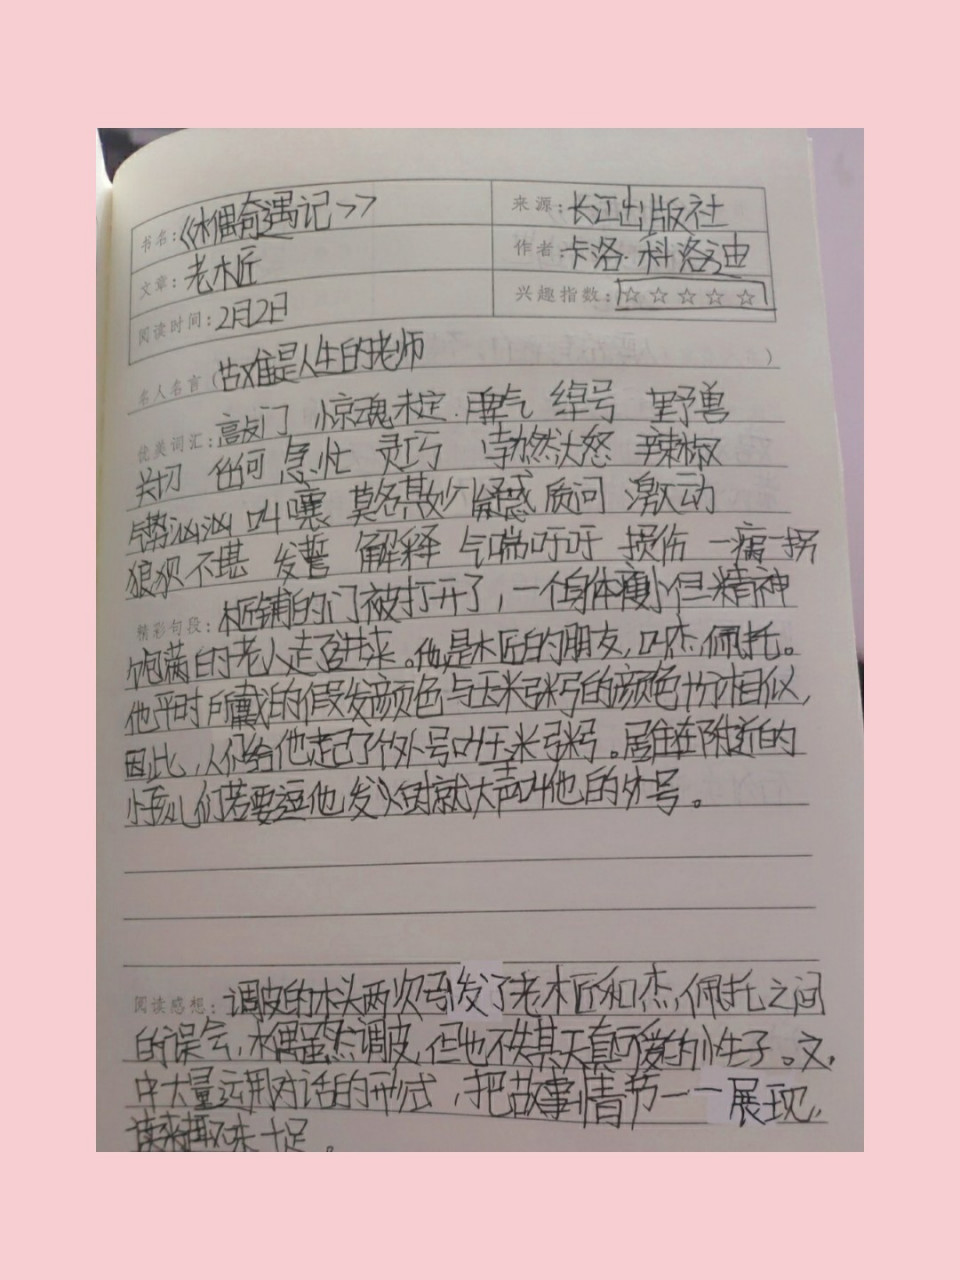 书名:《木偶奇遇记>> 来源:长江出版社
文章:老木匠 作者:卡洛·科洛迪
阅读时间:2月2日 兴趣指数:☆☆☆☆☆
名人名言(苦难是人生的老师)
优美词汇:敲门 惊魂未定 脾气 绰号 野兽
关切 任何 急忙 灵巧 勃然大怒 辣椒
气势汹汹 叫嚷 莫名其妙 疑惑 质问 激动
狼狈不堪 发誓 解释 气喘吁吁 损伤 一瘸一拐
精彩句段:木匠铺的门被打开了,一个身体瘦小但精神
饱满的老人走了进来。他是木匠的朋友,叫杰佩托。
他平时所戴的假发颜色与玉米粥的颜色十分相似,
因此,人们给他起了个外号叫玉米粥。居住在附近的
小孩儿们若要逗他发火时就大声叫他的外号。
阅读感想:调皮的木头两次引发了老木匠和杰佩托之间
的误会,木偶虽然调皮,但也不失其天真可爱的性子。文
中大量运用对话的形式,把故事情节一一展现,
读来趣味十足。